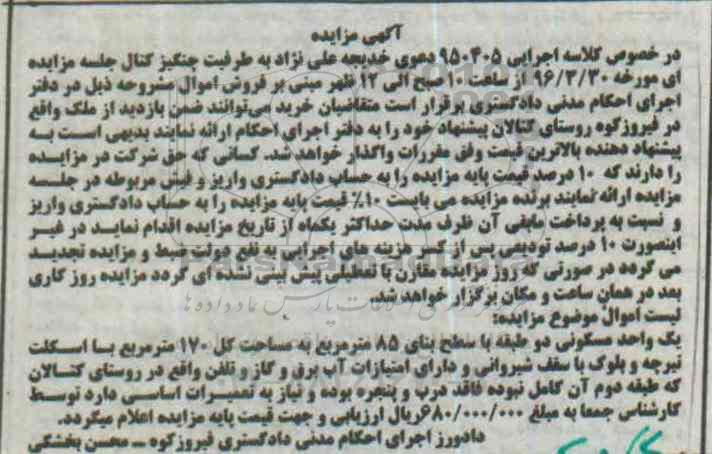 آگهی مزایده
در خصوص کلاسه اجرایی ۹۵۰۴۰۵ دعوی خدیجه علی نژاد به طرفیت چنگیز کتال جلسه مزایده
ای مورخه ۹۶/۳/۳۰ از ساعت ۱۰ صبح الی ۱۲ ظهر مبنی بر فروش اموال مشروحه ذیل در دفتر
اجرای احکام مدنی دادگستری برقرار است متقاضیان خرید می‌توانند ضمن بازدید از ملک واقع
در فیروزکوه روستای کتالان پیشنهاد خود را به دفتر اجرای احکام ارائه نمایند بدیهی است به
پیشنهاد دهنده بالاترین قیمت وفق مقررات واگذار خواهد شد. کسانی که حق شرکت در مزایده
را دارند که ۱۰ درصد قیمت پایه مزایده را به حساب دادگستری واریز و فیش مربوطه در جلسه
مزایده ارائه نمایند برنده مزایده می بایست ۱۰٪ قیمت پایه مزایده را به حساب دادگستری واریز
و نسبت به پرداخت مابقی آن ظرف مدت حداکثر یکماه از تاریخ مزایده اقدام نماید در غیر
اینصورت ۱۰ درصد تودیعی پس از کسر هزینه های اجرایی به نفع دولت ضبط و مزایده تجدید
می گردد در صورتی که روز مزایده مقارن با تعطیلی پیش بینی نشده ای گردد مزایده روز کاری
بعد در همان ساعت و مکان برگزار خواهد شد.
لیست اموال موضوع مزایده:
یک واحد مسکونی دو طبقه با سطح بنای ۸۵ مترمربع به مساحت کل ۱۷۰ مترمربع با اسکلت
تیرچه و بلوک با سقف شیروانی و دارای امتیازات آب برق و گاز و تلفن واقع در روستای کتالان
که طبقه دوم آن کامل نبوده فاقد درب و پنجره بوده و نیاز به تعمیرات اساسی دارد توسط
کارشناس جمعا به مبلغ ۶۸۰/۰۰۰/۰۰۰ریال ارزیابی و جهت قیمت پایه مزایده اعلام میگردد.
دادورز اجرای احکام مدنی دادگستری فیروزکوه ــ محسن بخشکی